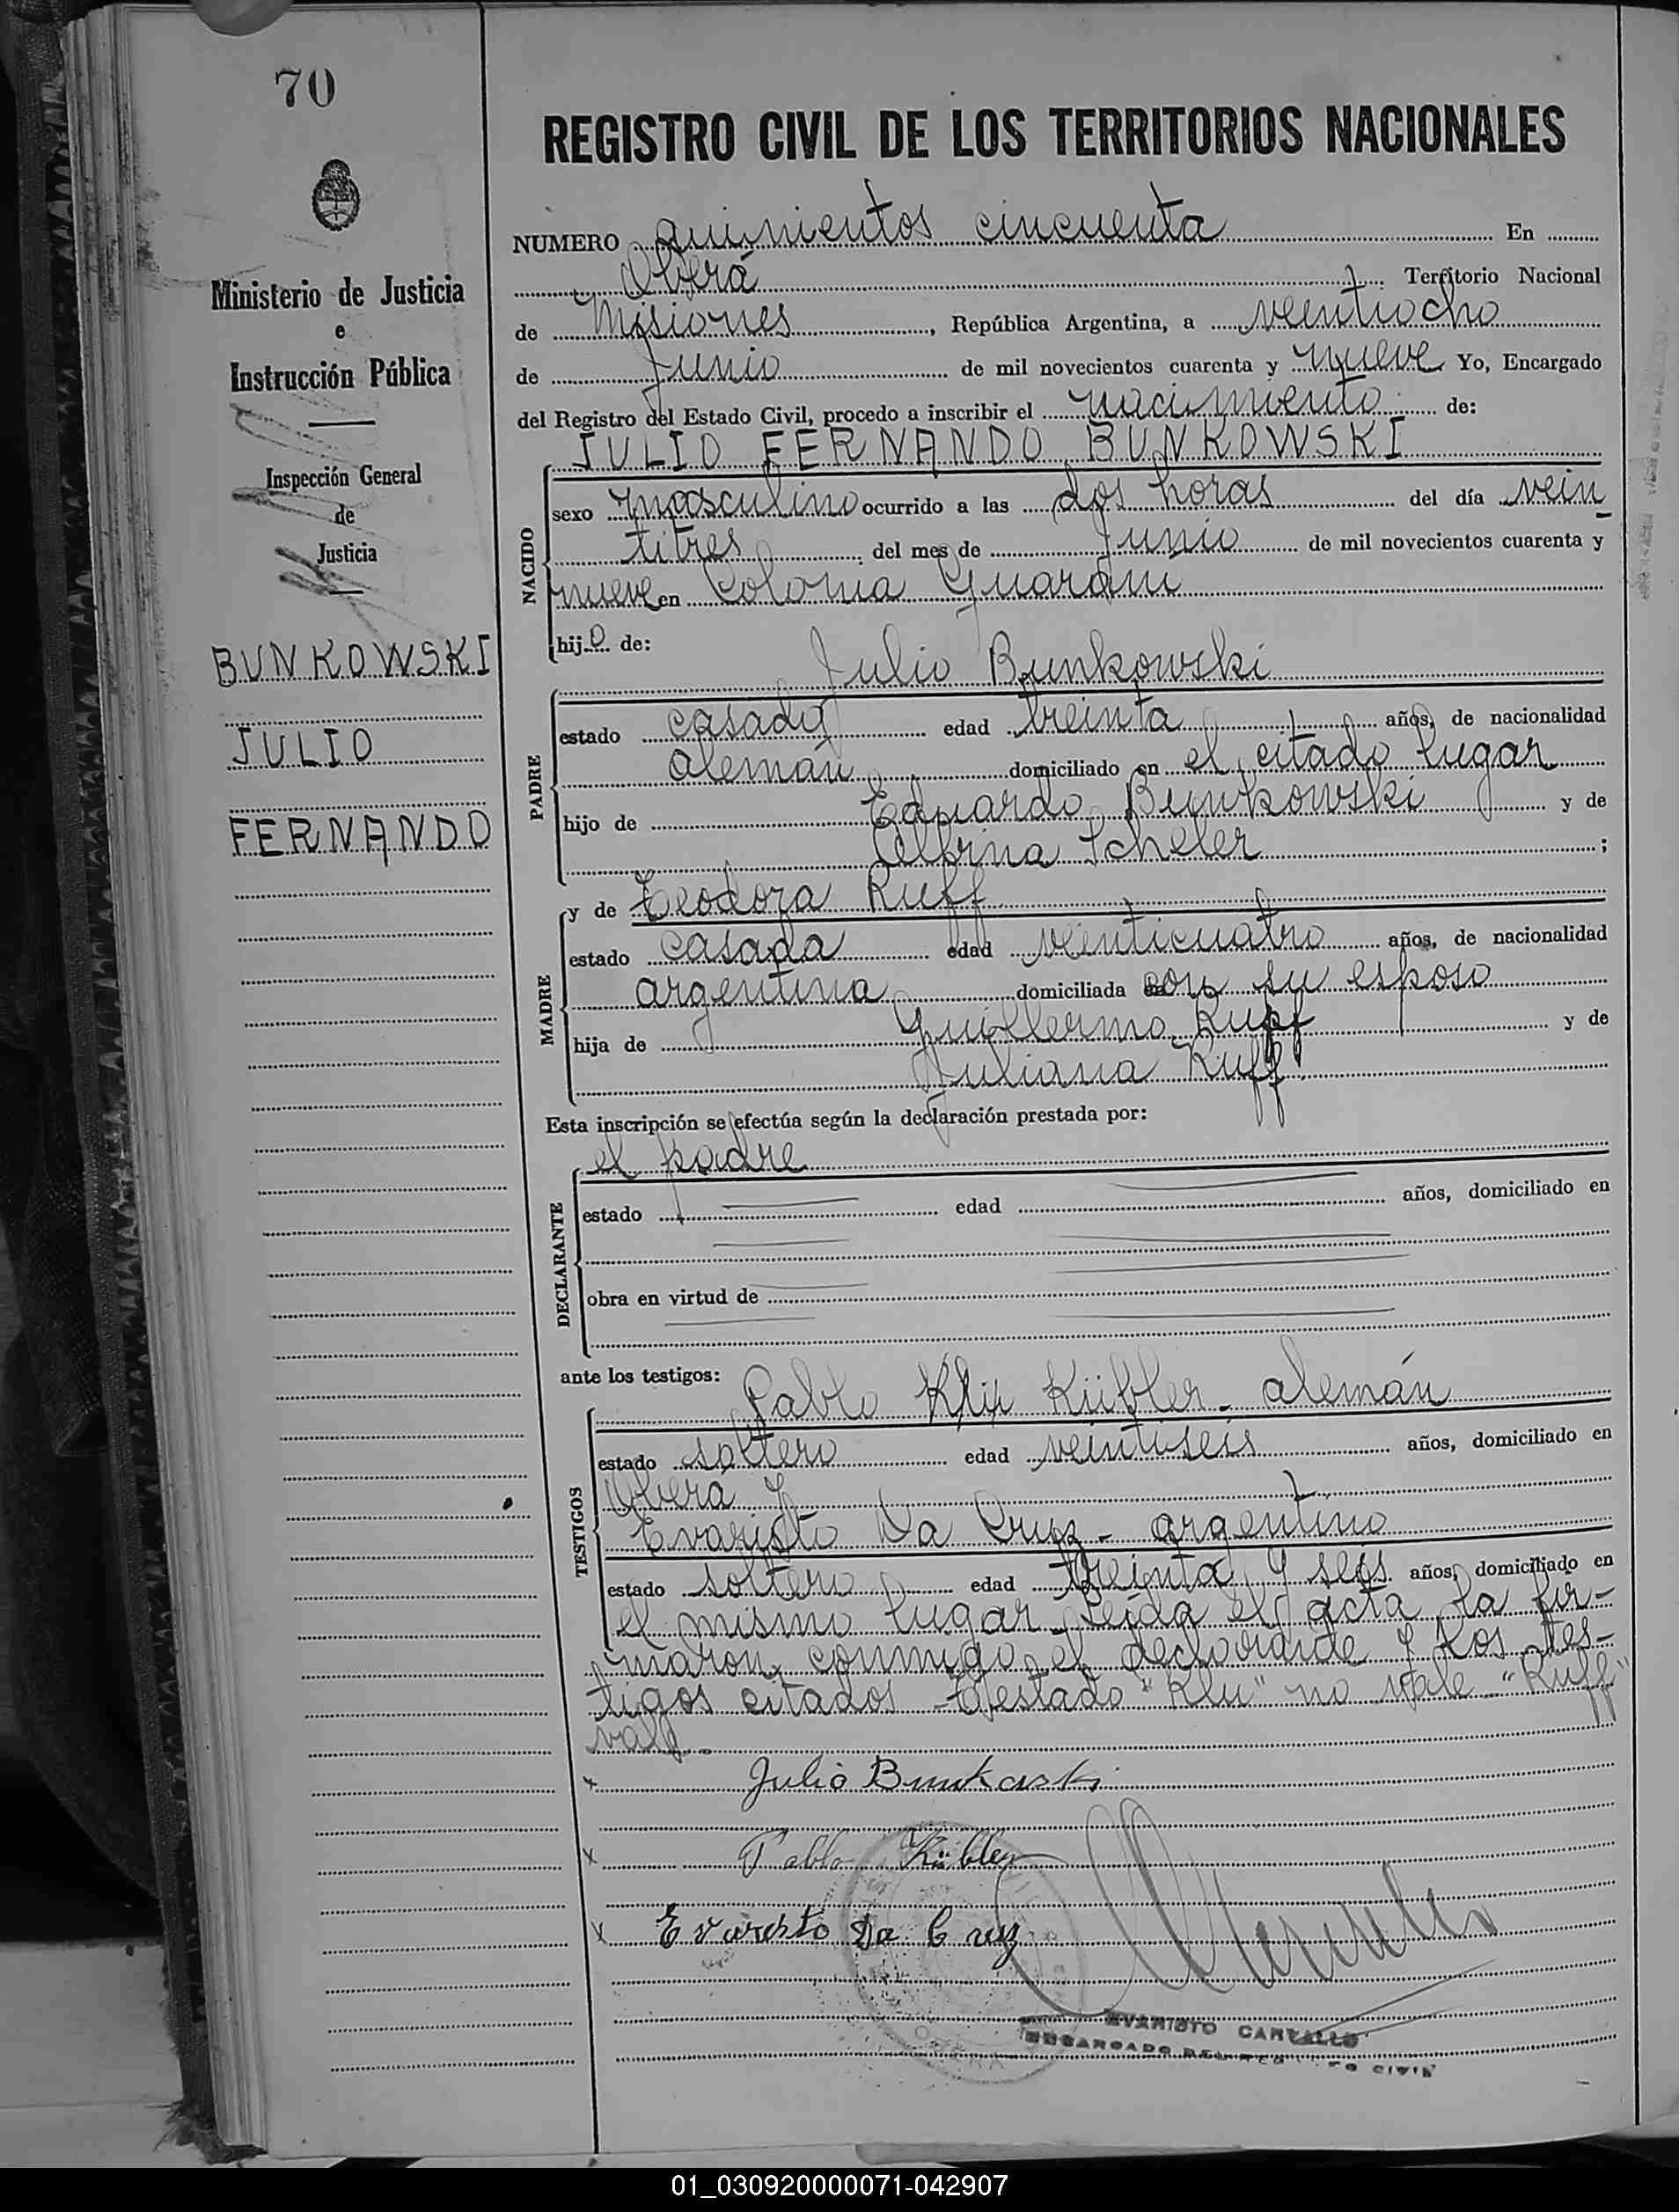 70
Ministerio de Justicia
e
Instrucción Pública
Inspección General
de
Justicia
BUNKOWSKI
JULIO
FERNANDO
REGISTRO CIVIL DE LOS TERRITORIOS NACIONALES
NUMERO quinientos cincuenta En
Oberá Territorio Nacional
de Misiones, República Argentina, a veintiocho
de Junio de mil novecientos cuarenta y nueve Yo, Encargado
del Registro del Estado Civil, procedo a inscribir el nacimiento de:
JULIO FERNANDO BUNKOWSKI
NACIDO
sexo masculino ocurrido a las dos horas del día vein
titres del mes de Junio de mil novecientos cuarenta y
nueve en Colonia Guaraní
hijo de:
Julio Bunkowski
PADRE
estado casado edad treinta años, de nacionalidad
alemán domiciliado en el citado lugar
hijo de Eduardo Bunkowski y de
Albina Scheler ;
y de Teodora Ruff
MADRE
estado casada edad veinticuatro años, de nacionalidad
argentina domiciliada con su esposo
hija de Guillermo Ruff y de
Juliana Ruff
Esta inscripción se efectúa según la declaración prestada por:
el padre
DECLARANTE
estado edad años, domiciliado en
obra en virtud de
ante los testigos:
Pablo Klu Kübler - alemán
TESTIGOS
estado soltero edad veintiseis años, domiciliado en
Oberá y
Evaristo Da Cruz - argentino
estado soltero edad treinta y seis años, domiciliado en
el mismo lugar. Leída el acta la fir-
maron conmigo el declarante y los tes-
tigos citados - Testado "Klu" no vale - "Ruff"
vale.
x Julio Bunkowski
x Pablo Kübler
x Evaristo Da Cruz
EVARISTO CARVALLO
ENCARGADO DEL REGISTRO CIVIL
01_030920000071-042907